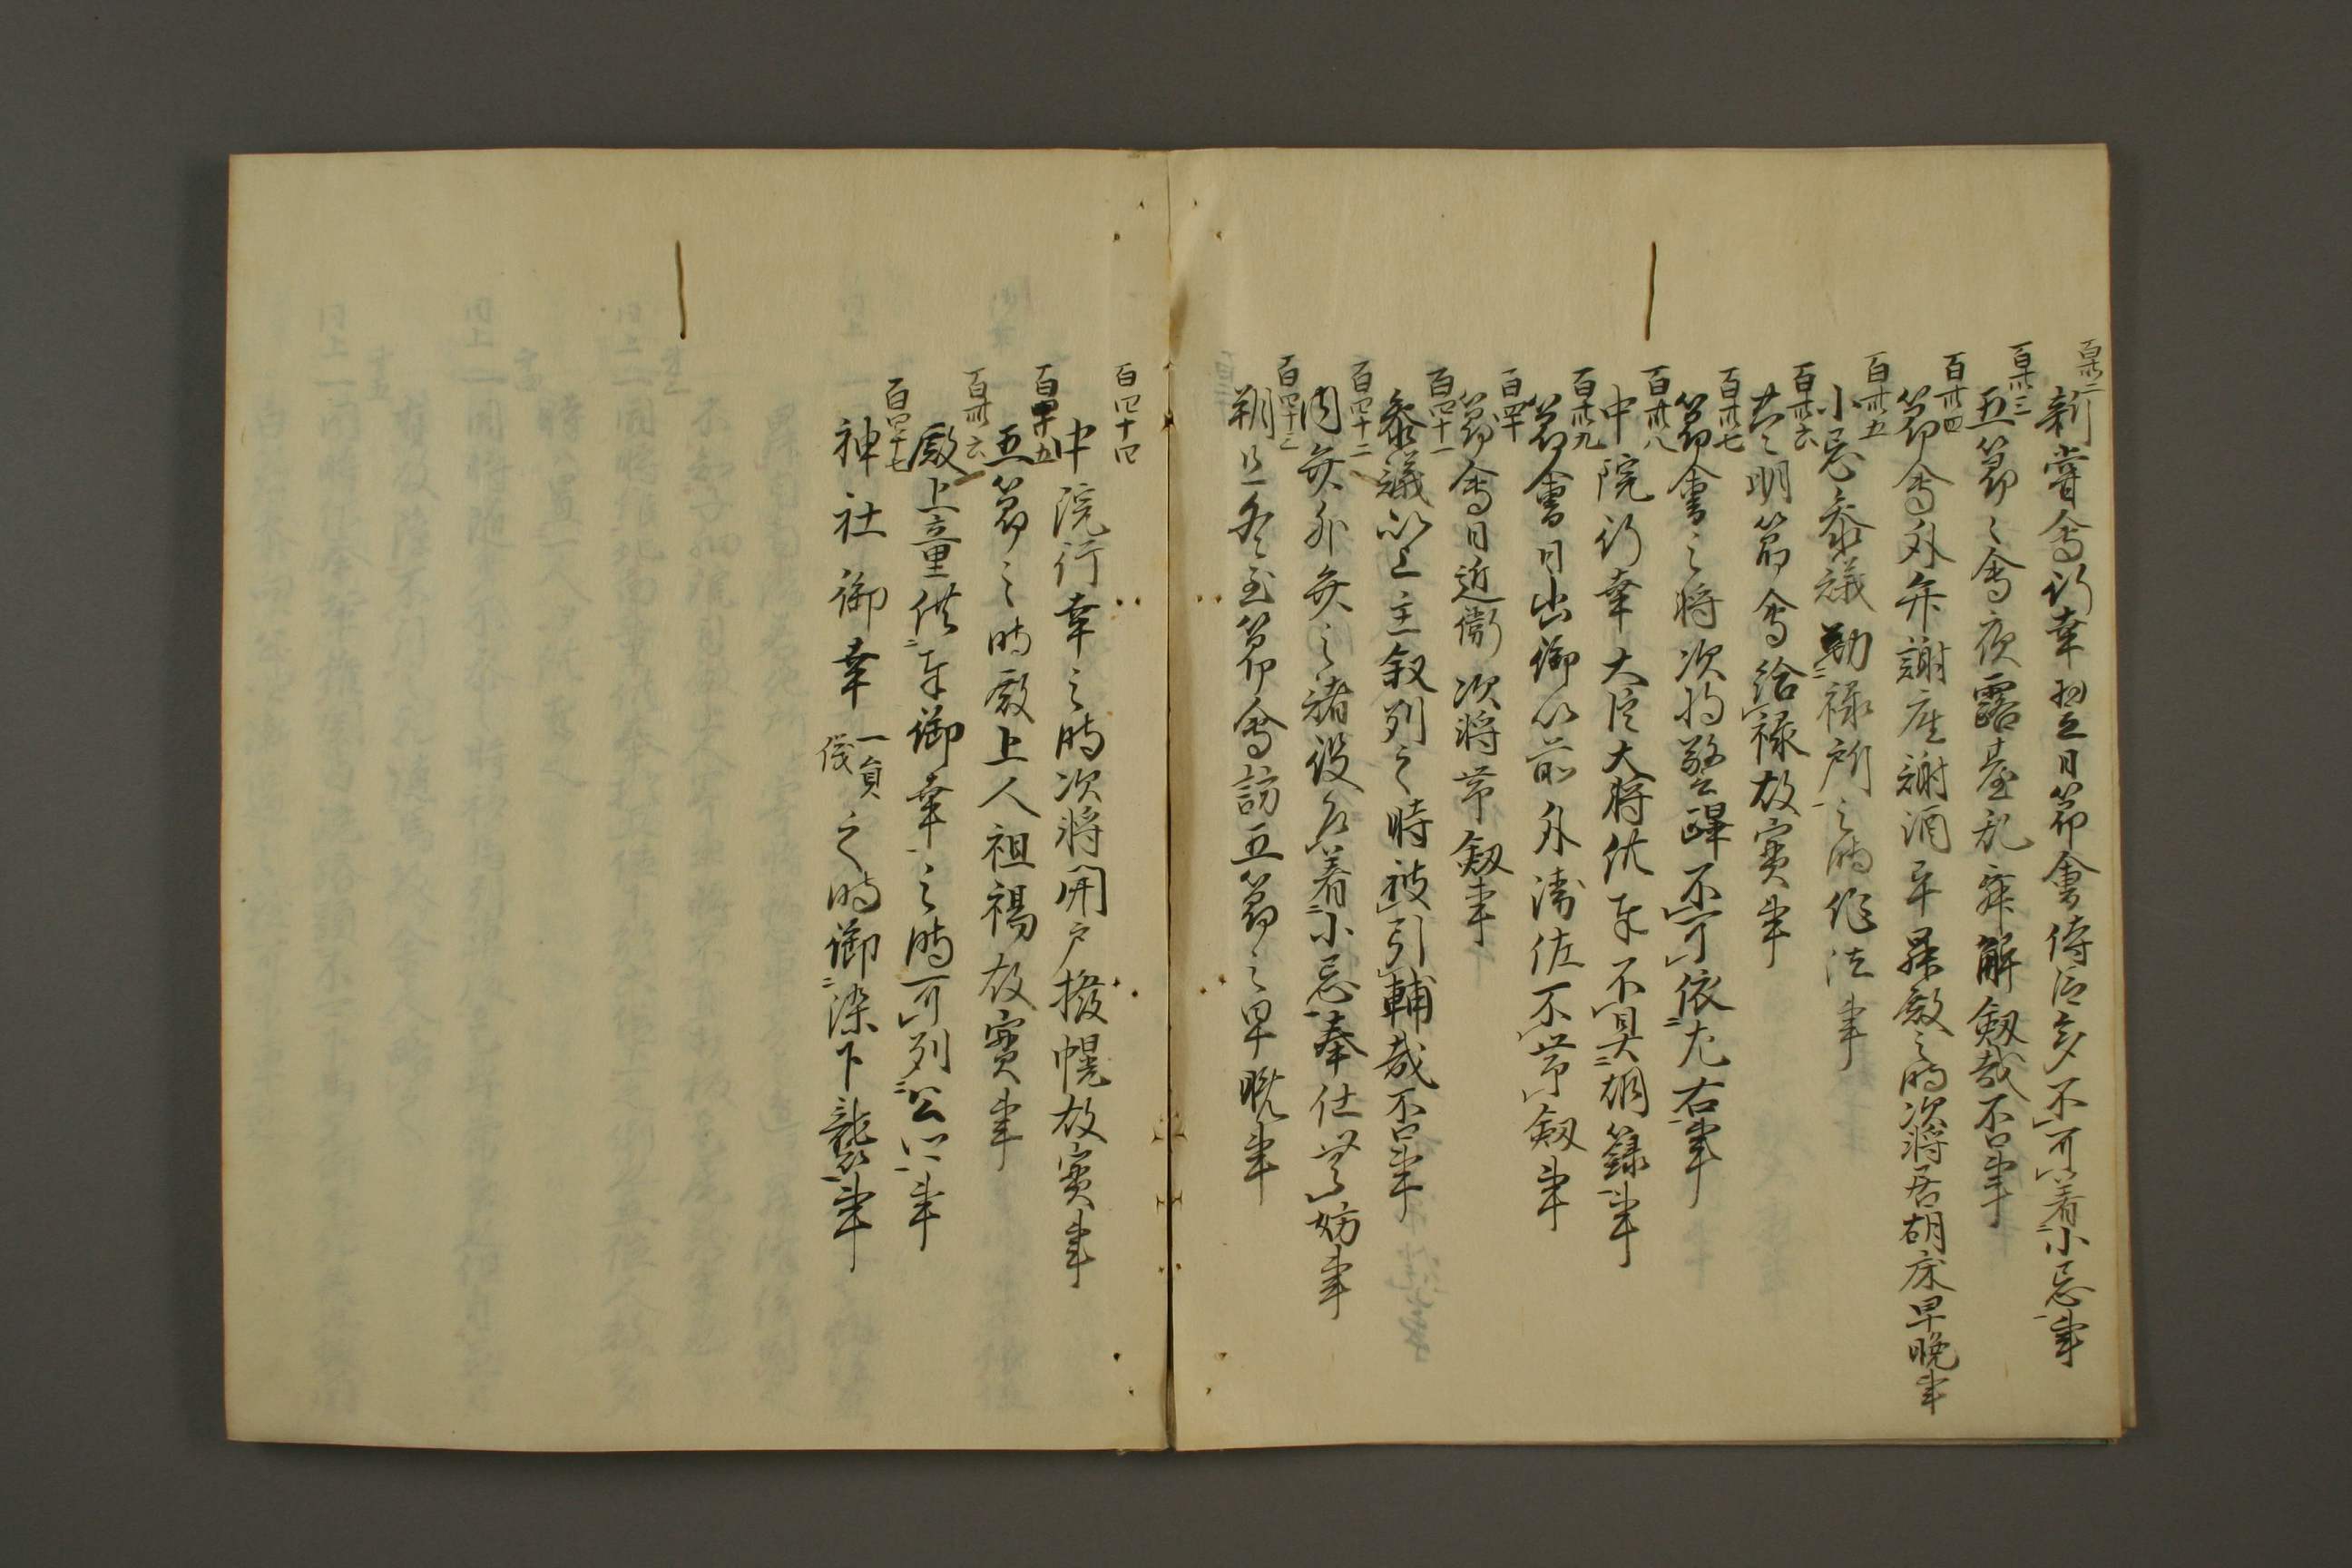 百卅二
新嘗會行幸翌日節會侍臣多不可着小忌事
百卅三
五節之會夜露臺乱舞解劔哉不事
百卅四
節會外弁謝座謝酒畢昇殿之時次将居胡床早晩事
百卅五
小忌参議勤禄所之時作法事
百卅六
豊明節會給禄故實事
百卅七
節會之時次将警蹕不可依左右事
百卅八
中院行幸大臣大将供奉不具胡籙事
百卅九
節會日出御以前外衛佐不帯劔事
百四十
節會日近衛次将帯劔事
百四十一
参議以上主叙列之時被引輔哉不事
百四十二
内弁外弁之諸役者着小忌奉仕無妨事
百四十三
朔旦冬至節會訪五節之早晩事
百四十四
中院行幸之時次将開戸撥幌故實事
百四十五
五節之時殿上人袒裼故實事
百卅六
殿上童供奉御幸之時可列公卿事
百四十七
神社御幸一員儀之時御染下襲事